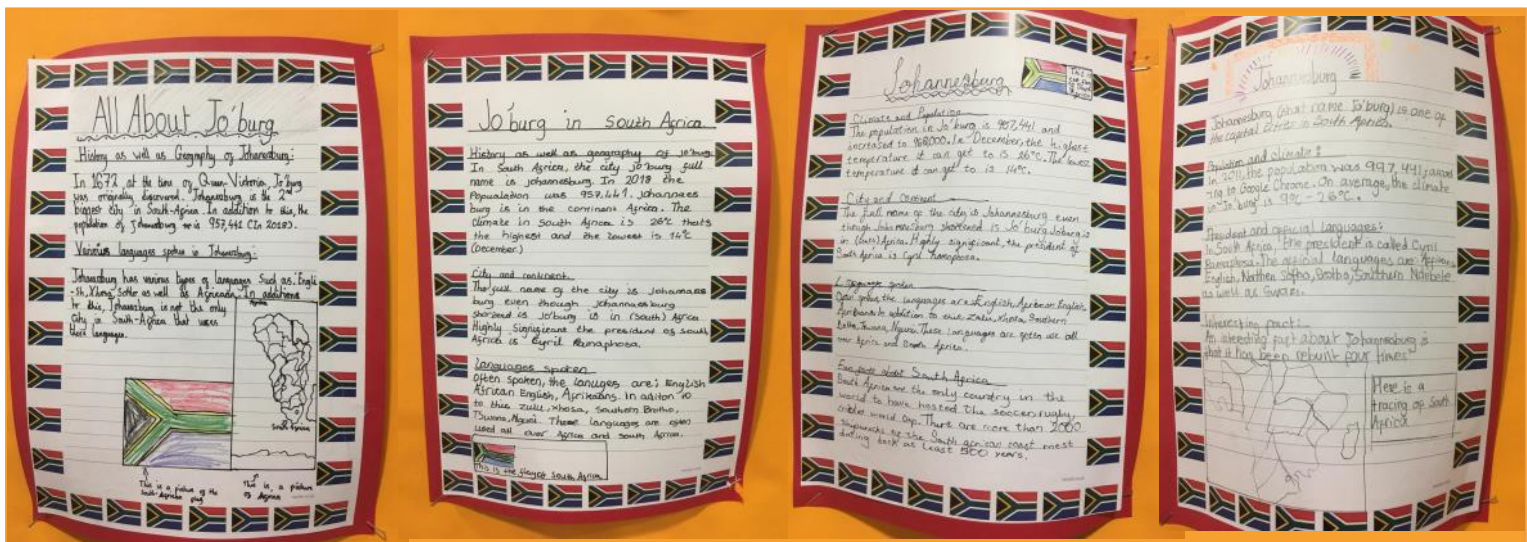 All About Jo'burg
History as well as Geography of Johannesburg:
In 1672, at the time of Queen Victoria, Jo'burg
was originally discovered. Johannesburg is the 2nd
biggest city in South-Africa. In addition to this, the
population of Johannesburg is 957,441 (In 2018).
Various languages spoken in Johannesburg:
Johannesburg has various types of languages such as: Engli
-sh, Xhosa, Sotho as well as African. In additions
to this, Johannesburg is not the only
city in South-Africa that uses
their languages.
South Africa
This is a picture of the
South-African flag
This is a picture
of Africa
Jo'burg in South Africa
History as well as geography of jo'burg
In South Africa, the city jo'burg full
name is johannesburg. In 2018 the
Popualation was 957.441. johannees
burg is in the continant Africa. The
climate in South Africa is 26°c thats
the highest and the lowest is 14°c
(December)
City and continent
The full name of the city is Johannaes
burg even though johannaesburg
shortend is jo'burg is in (South) Africa
Highly Significant the president of south
Africa is Cyril Ramaphosa.
Languages spoken
Often spoken, the lanuges are; English
African English, Afrikaans. In aditon to
to this zulu, xhosa, Southern Brotho,
Tswana, Nguni. These languages are often
used all over Africa and South Africa.
This is the flag of South Africa
Johannesburg
This is
the flag
of South
Africa
Climate and Population
The population in Jo'burg is 957,441 and
increased to 968,000. In December, the highest
temperature it can get to is 26°c. The lowest
temperature it can get to is 14°c.
City and continent
The full name of the city is Johannesburg even
though Johannesburg shortened is Jo'burg. Joburg is
in (South) Africa. Highly significant, the president of
South Africa is Cyril Ramaphosa.
Languages spoken
Often spoken, the languages are; English, African English,
Afrikaans. In addition to this: Zulu, Xhosa, Southern
Botho, Tswana, Nguni. These languages are often use all
over Africa and South Africa.
Fun facts about South Africa
South Africa are the only country in the
world to have hosted the soccer, rugby,
cricket world cup. There are more than 2000
shipwrecks of the South african coast most
dating back at least 500 years.
Johannesburg
Johannesburg (short name Jo'burg) is one of
the capital cities in South Africa.
Population and climate:
in 2011, the population was 997,441, accord
-ing to Google Chrome. On average, the climate
in "Jo'burg" is 9°c - 26°c.
President and official languages:
In South Africa, the president is called Cyril
Ramaphosa. The official languages are: Afrikaans
English, Northen Sotho, Southern Ndebele
as well as Swazi.
Interesting fact:
An interesting fact about Johannesburg is
that it has been rebuilt four times
Here is a
tracing of South
Africa